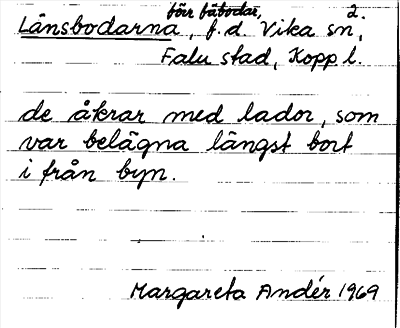 förr fäbodar, 2.
Långsbodarna, f.d. Vika sn,
Falu stad, Kopp l.
de åkrar med lador, som
var belägna längst bort
i från byn.
Margareta Andér 1969